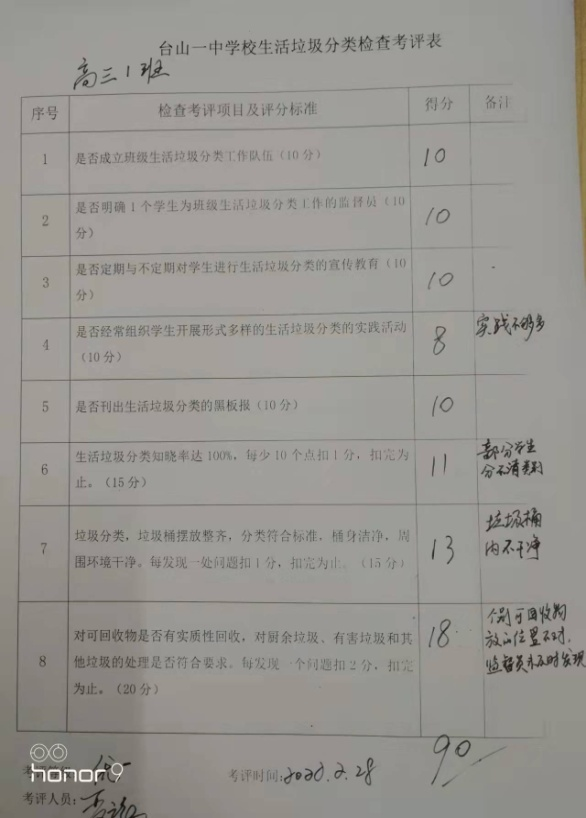 台山一中学校生活垃圾分类检查考评表
高三1班
序号 检查考评项目及评分标准 得分 备注
1 是否成立班级生活垃圾分类工作队伍（10分） 10
是否明确1个学生为班级生活垃圾分类工作的监督员（10
2 分） 10
是否定期与不定期对学生进行生活垃圾分类的宣传教育（10
3 分） 10
是否经常组织学生开展形式多样的生活垃圾分类的实践活动 实践不够多
4 （10分） 8
5 是否刊出生活垃圾分类的黑板报（10分） 10
生活垃圾分类知晓率达100%，每少10个点扣1分，扣完为 部分学生
6 止。（15分） 11 分不清类别
垃圾分类，垃圾桶摆放整齐，分类符合标准，桶身洁净，周 垃圾桶
7 围环境干净。每发现一处问题扣1分，扣完为止。（15分） 13 内不干净
对可回收物是否有实质性回收，对厨余垃圾、有害垃圾和其 18 个别可回收物
8 他垃圾的处理是否符合要求。每发现一个问题扣2分，扣完 放的位置不对，
为止。（20分） 监督员未及时发现
90
honor9
考评时间：2022.2.28
考评人员：